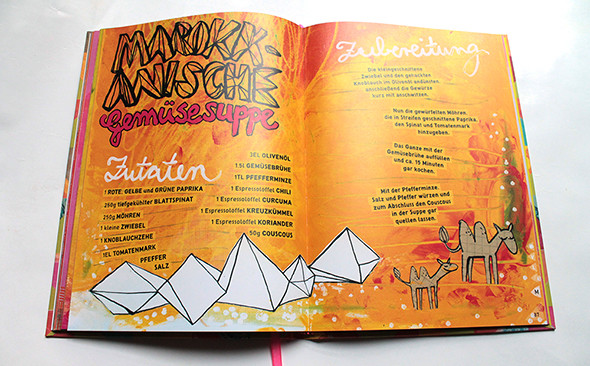 MAROKK-
ANISCHE
Gemüsesuppe
Zutaten
1 ROTE, GELBE und GRÜNE PAPRIKA
250g tiefgekühlter BLATTSPINAT
250g MÖHREN
1 kleine ZWIEBEL
1 KNOBLAUCHZEHE
1EL TOMATENMARK
PFEFFER
SALZ
3EL OLIVENÖL
1,5l GEMÜSEBRÜHE
1TL PFEFFERMINZE
1 Espressolöffel CHILI
1 Espressolöffel CURCUMA
1 Espressolöffel KREUZKÜMMEL
1 Espressolöffel KORIANDER
50g COUSCOUS
Zubereitung
Die kleingeschnittene
Zwiebel und den gehackten
Knoblauch im Olivenöl andünsten,
anschließend die Gewürze
kurz mit anschwitzen.
Nun die gewürfelten Möhren,
die in Streifen geschnittene Paprika,
den Spinat und Tomatenmark
hinzugeben.
Das Ganze mit der
Gemüsebrühe auffüllen
und ca. 15 Minuten
gar kochen.
Mit der Pfefferminze,
Salz und Pfeffer würzen und
zum Abschluss den Couscous
in der Suppe gar
quellen lassen.
M
81